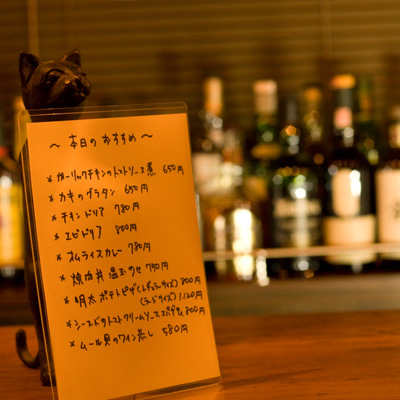 〜 本日のおすすめ 〜
* ガーリックチキンのトマトソース煮 650円
* カキのグラタン 650円
* チキンドリア 780円
* エビドリア 800円
* オムライスカレー 780円
* 焼肉丼 温玉のせ 750円
* 明太ポテトピザ(レギュラーサイズ) 800円
(ラージサイズ) 1120円
* シーフードのトマトクリームソースパスタ 800円
* ムール貝のワイン蒸し 580円